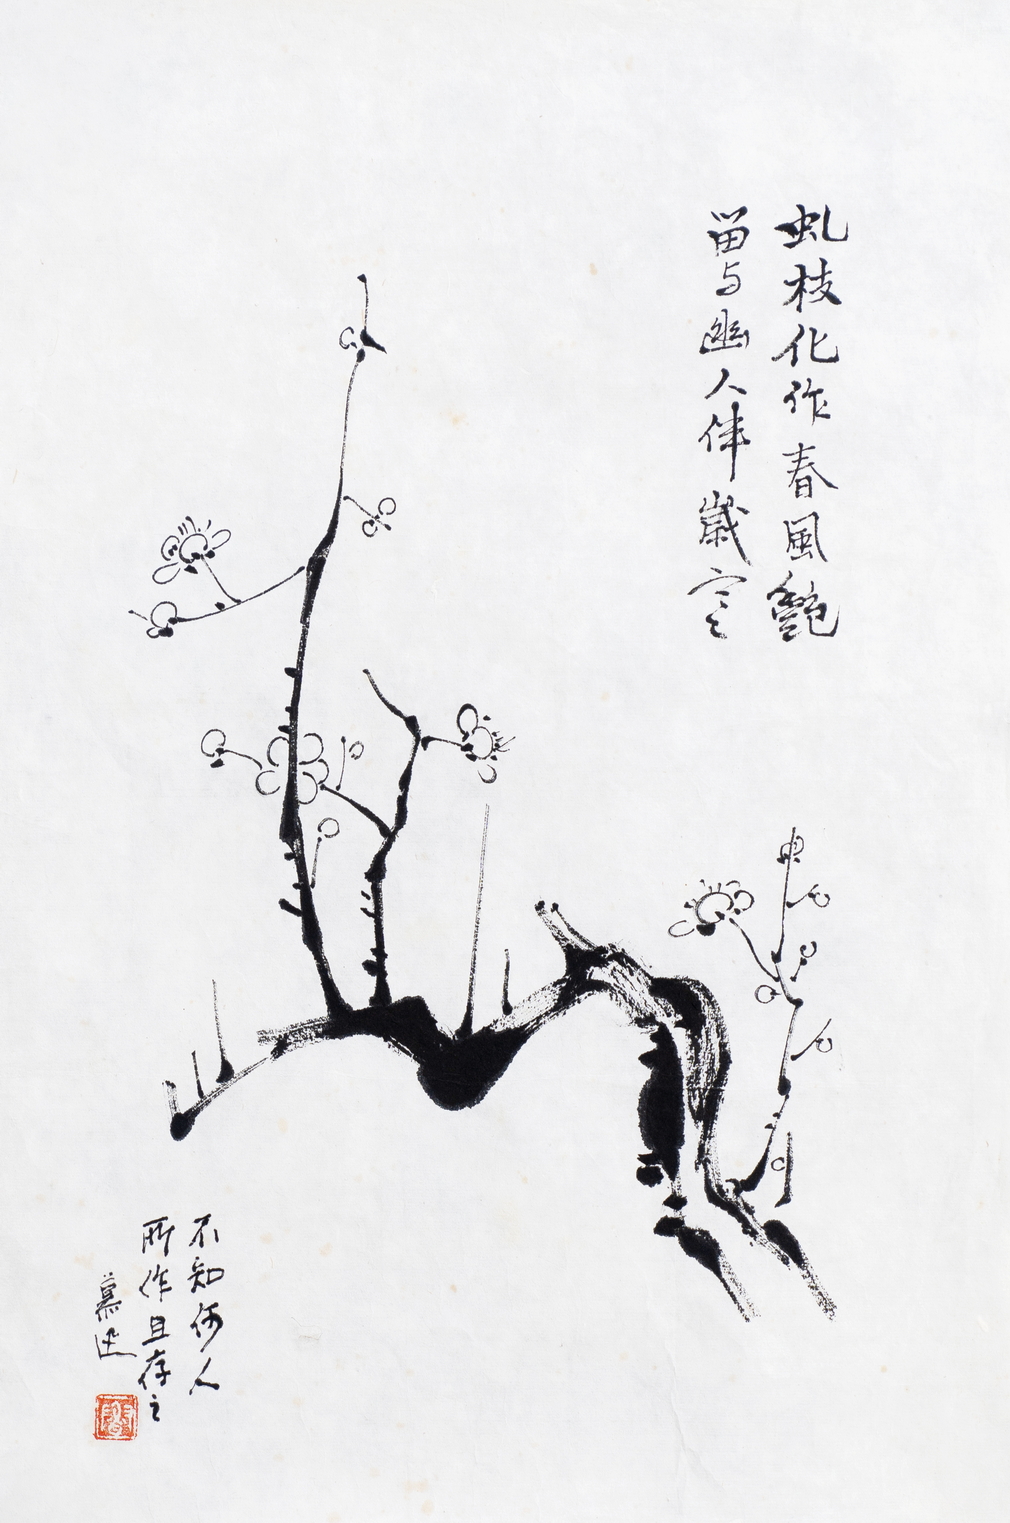 虬枝化作春風艷
留与幽人伴歲寒
不知何人
所作且存之
慕迅